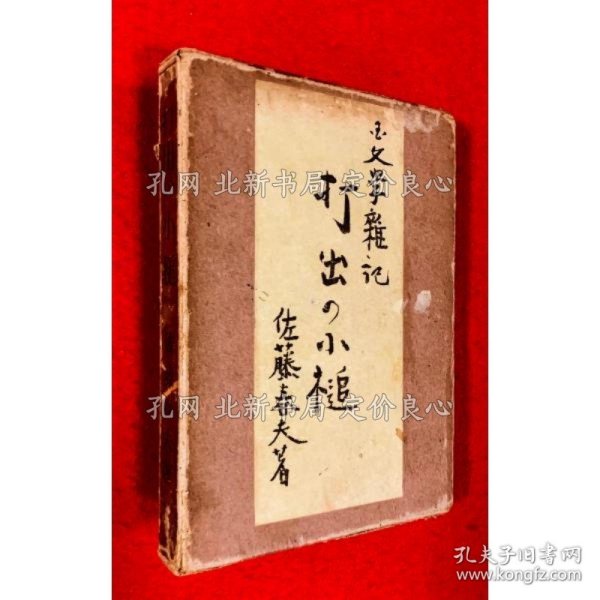 玉文學雜記
打出の小槌
佐藤春夫著
孔网 北新书局 定价良心
孔网 北新书局 定价良心
孔夫子旧书网
www.kongfz.com